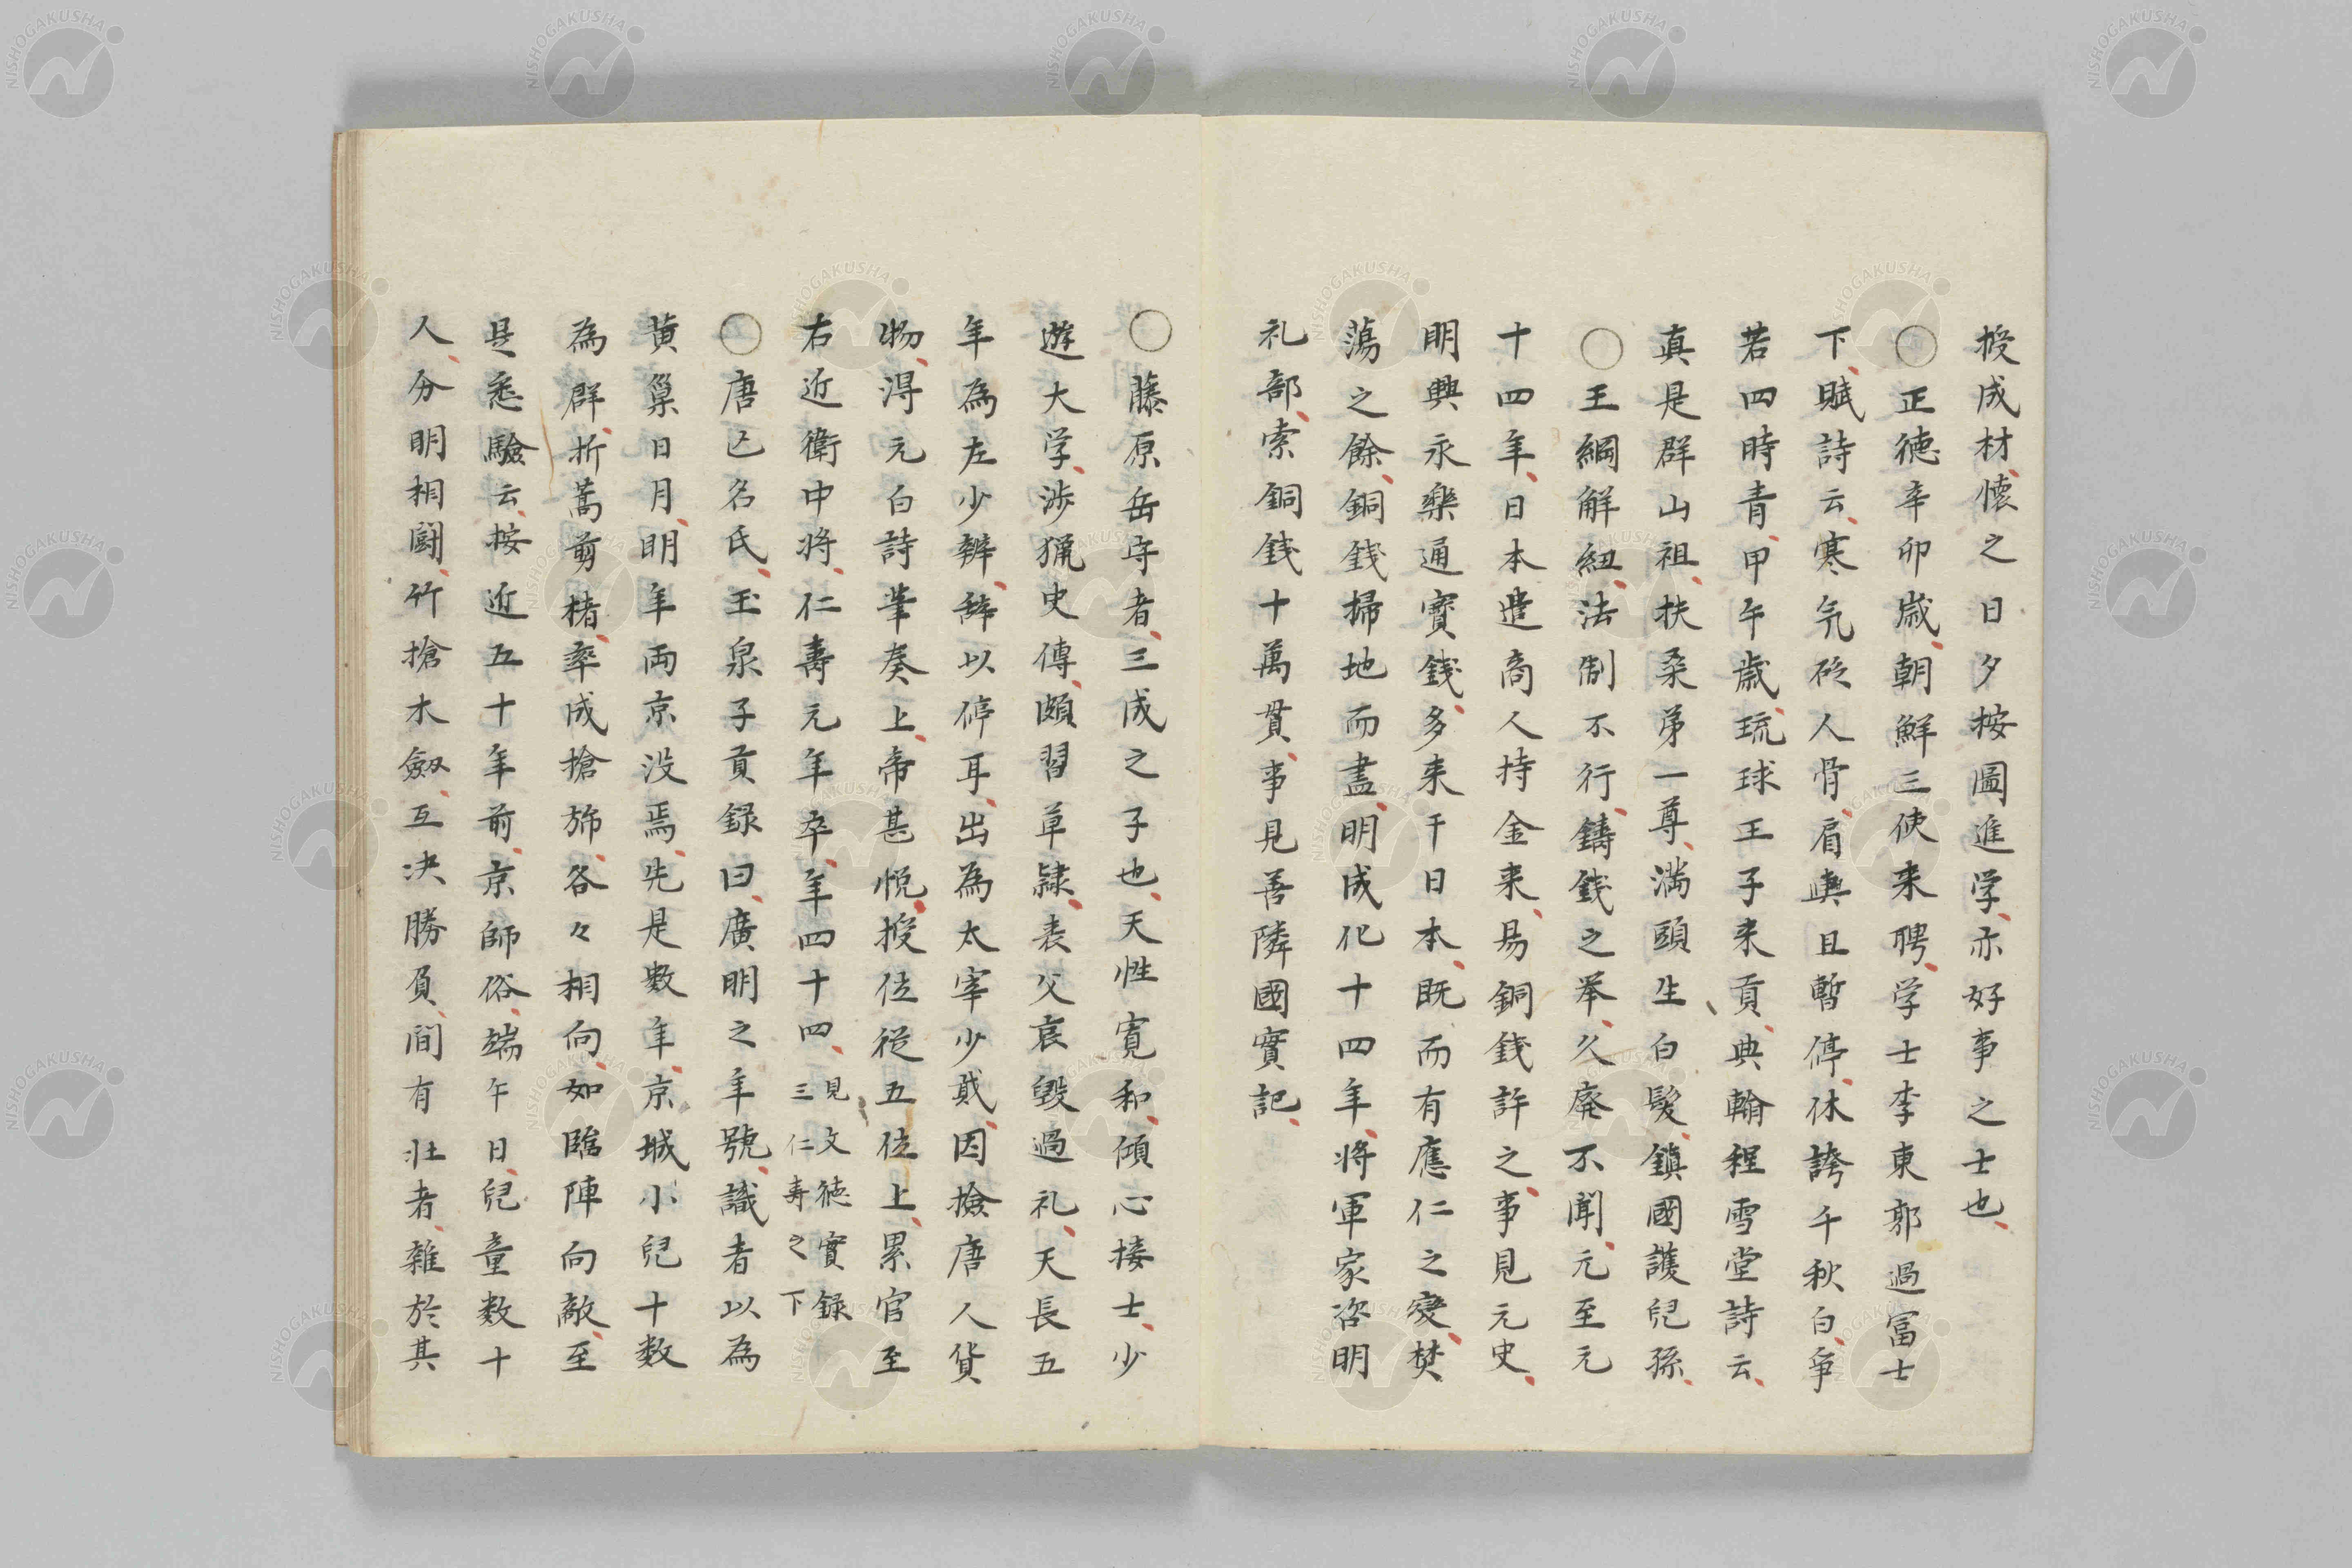 授成材、懐之日夕按圖進学、亦好事之士也、
○正徳辛卯歳、朝鮮三使来聘、学士李東郭過冨士
下、賦詩云、寒気砭人骨、肩輿且暫停、休誇千秋白、争
若四時青、甲午歳、琉球王子来貢、典翰程雪堂詩云、
真是群山祖、扶桒弟一尊、満頭生白髪、鎮國護兒孫、
○王綱解紐、法制不行、鑄錢之举、久廃不聞、元至元
十四年、日本遣商人持金来、易銅錢許之、事見元史、
明興永樂通寳錢、多来于日本、既而有應仁之變、焚
蕩之餘、銅錢掃地而盡、明成化十四年、将軍家咨明
礼部、索銅錢十萬貫、事見善隣國寳記、
○藤原岳守者、三成之子也、天性寛和、傾心接士、少
遊大学、渉猟史傳、頗習草隷、丧父哀毀過礼、天長五
年為左少辨、辞以停耳、出為太宰少貳、因撿唐人貨
物、得元白詩筆奏上、帝甚悦、授位従五位上、累官至
右近衛中将、仁壽元年卒、年四十四、見文徳實録三仁寿之下
○唐亡名氏、玉泉子貢録曰、廣明之年號、識者以為
黄巢日月、明年両京没焉、先是數年、京城小兒十数
為群、折蒿剪楮、率成搶旆、各々相向、如臨陣向敵、至
是悉驗云、按近五十年前、京師俗、端午日、兒童数十
人、分明相闘、竹搶木劔、互决勝負、間有壮者、雜於其